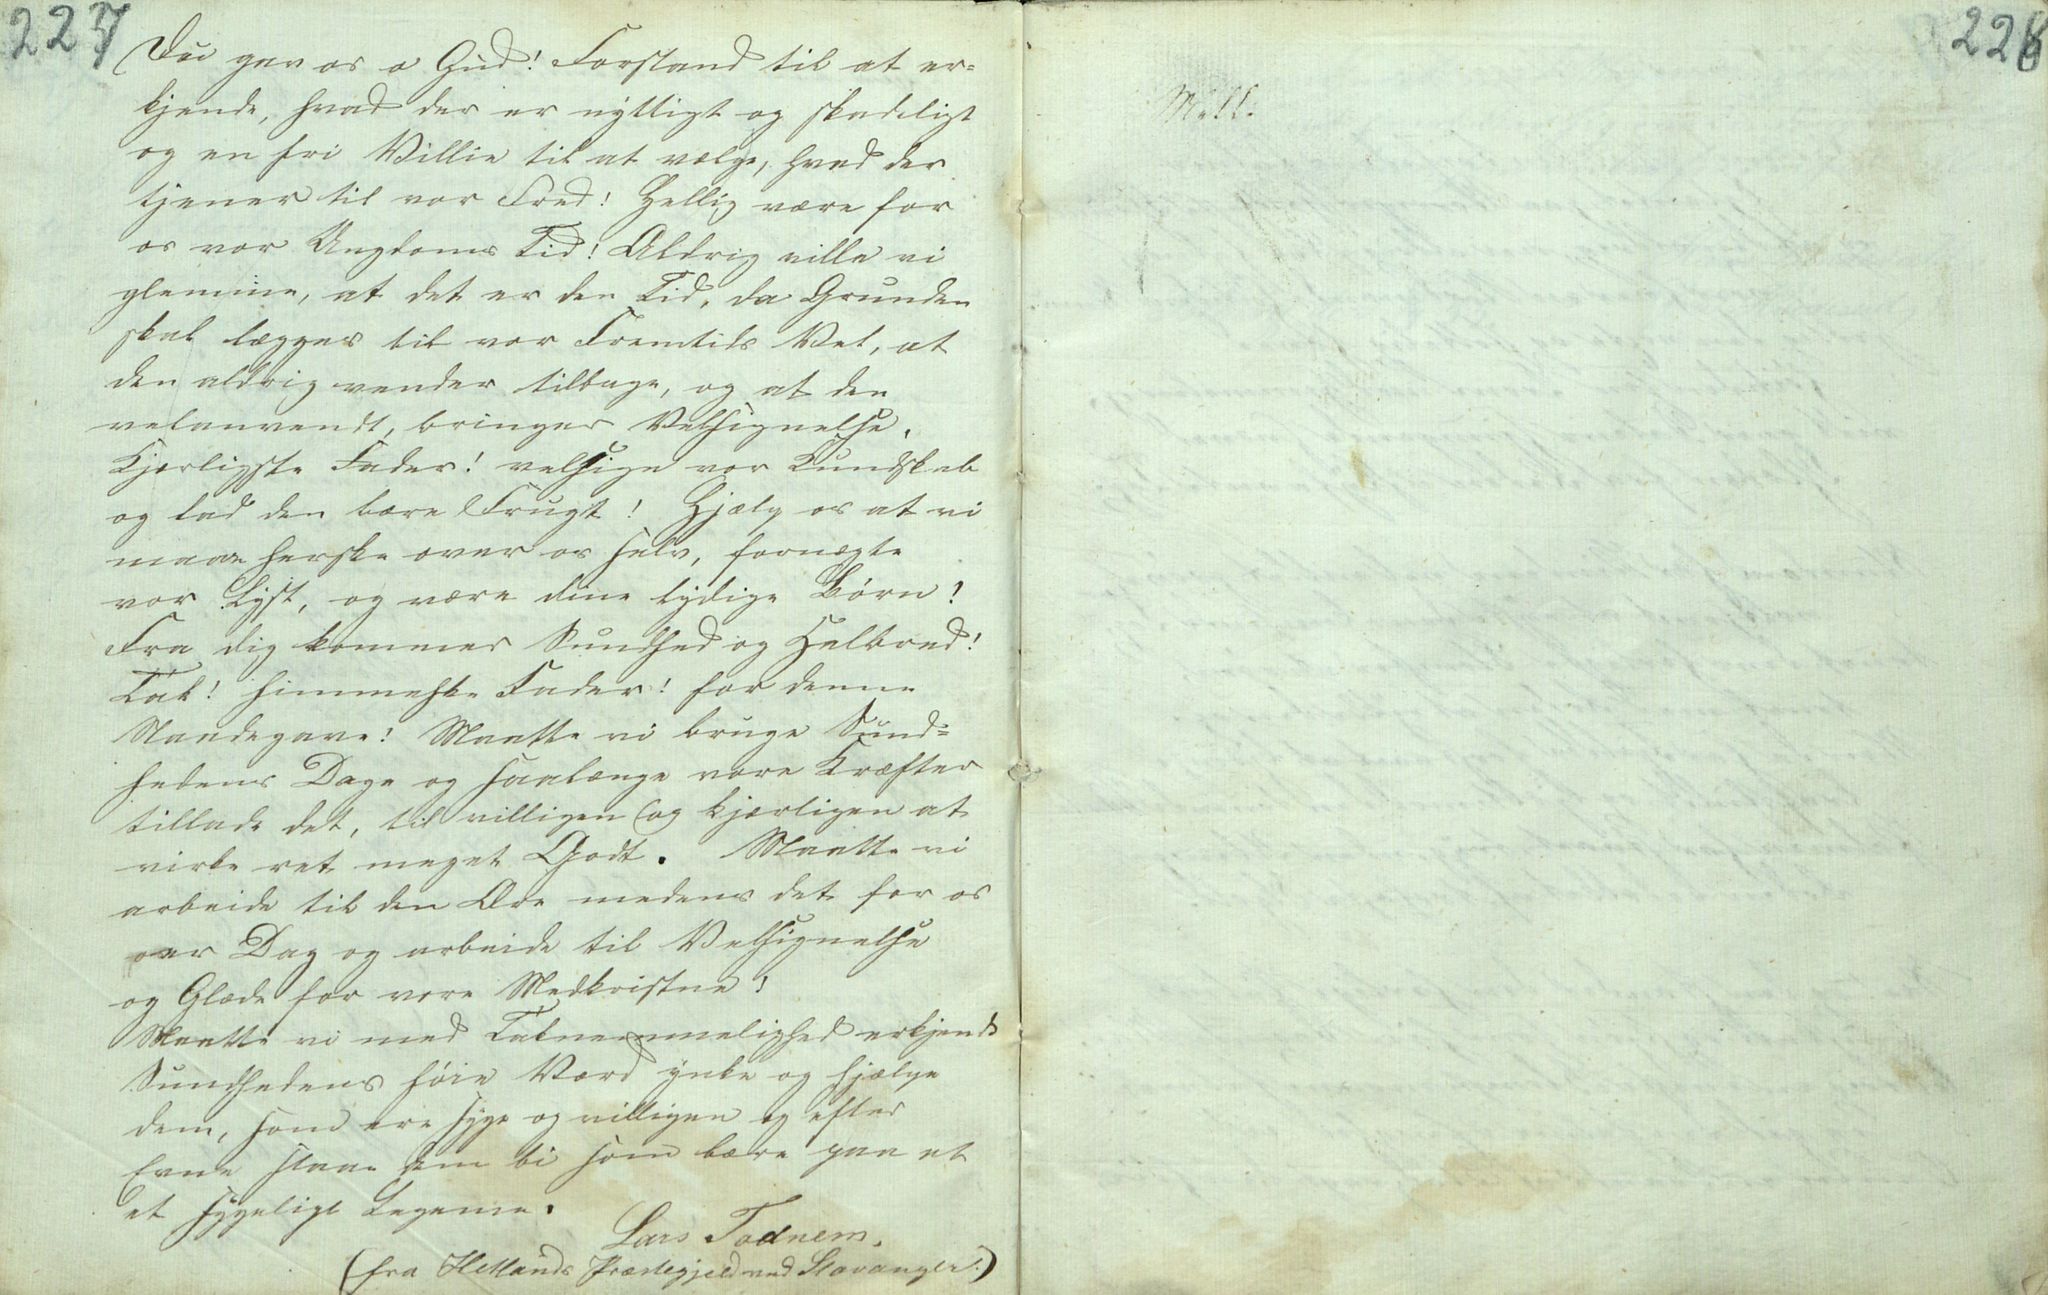 227
Du gav os o Gud! Forstand til at er-
kjende, hvad der er nyttigt og skadeligt
og en fri Villie til at vælge, hvad der
tjener til vor Fred! Hellig være for
os vor Ungdoms Tid! Aldrig ville vi
glemme, at det er den Tid, da Grunden
skal lægges til vor Fremtids Vel, at
den aldrig vender tilbage, og at den
velanvendt, bringer Velsignelse.
Kjærligste Fader! velsign vor Kundskab
og lad den bære Frugt! Hjælp os at vi
maae herske over os selv, fornægte
vor Lyst, og være dine lydige Børn!
Fra dig kommer Sundhed og Helbred!
Tak! himmelske Fader! for denne
Naadegave! Maatte vi bruge Sund-
hedens Dage og saalænge vore Kræfter
tillade det, til villigen og kjærligen at
virke ret meget Godt. Maatte vi
arbeide til den Ære medens det for os
er Dag og arbeide til Velsignelse
og Glæde for vore Medkristne!
Maatte vi med Taknemmelighed erkjende
Sundhedens høie Værd ynke og hjælpe
dem, som ere syge og villigen og efter
Evne staae dem bi som bære paa et
et sygeligt Legeme.
Lars Todnem.
(fra Hetlands Præstegjeld ved Stavanger.)
228